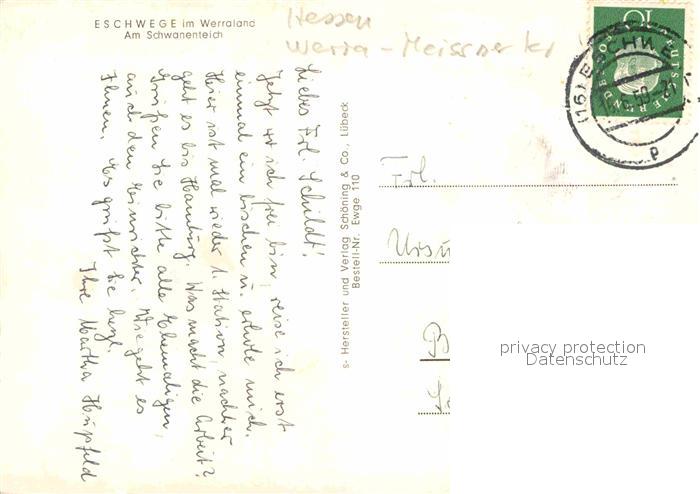 ESCHWEGE im Werraland
Am Schwanenteich
Hessen
Werra-Meissner kr
Liebes Frl. Schildt!
Jetzt wo ich frei bin, reise ich erst
einmal ein bischen u. erhole mich.
Hier ist mal wieder 1. Station, nachher
geht es bis Hamburg. Was macht die Arbeit?
Grüßen Sie bitte alle Ehemaligen,
auch den Hinrichter. Wie geht es
Ihnen. Es grüßt Sie herzl.
Ihre Martha Hupfeld
s- Hersteller und Verlag Schöning & Co., Lübeck
Bestell-Nr. Ewge. 110
Frl.
Ursu
B
10
DEUTSCHE BUNDESPOST
(16) ESCHW
privacy protection
Datenschutz